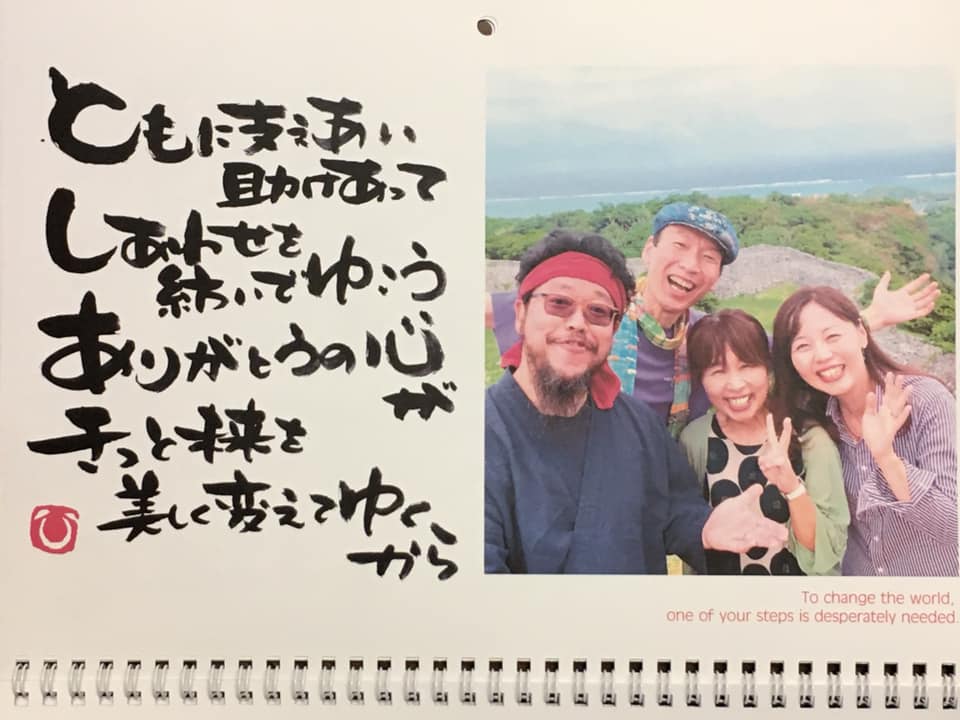 ともに支えあい
助けあって
しあわせを
紡いでゆこう
ありがとうの心
が
きっと未来を
美しく変えてゆく
から
To change the world,
one of your steps is desperately needed.